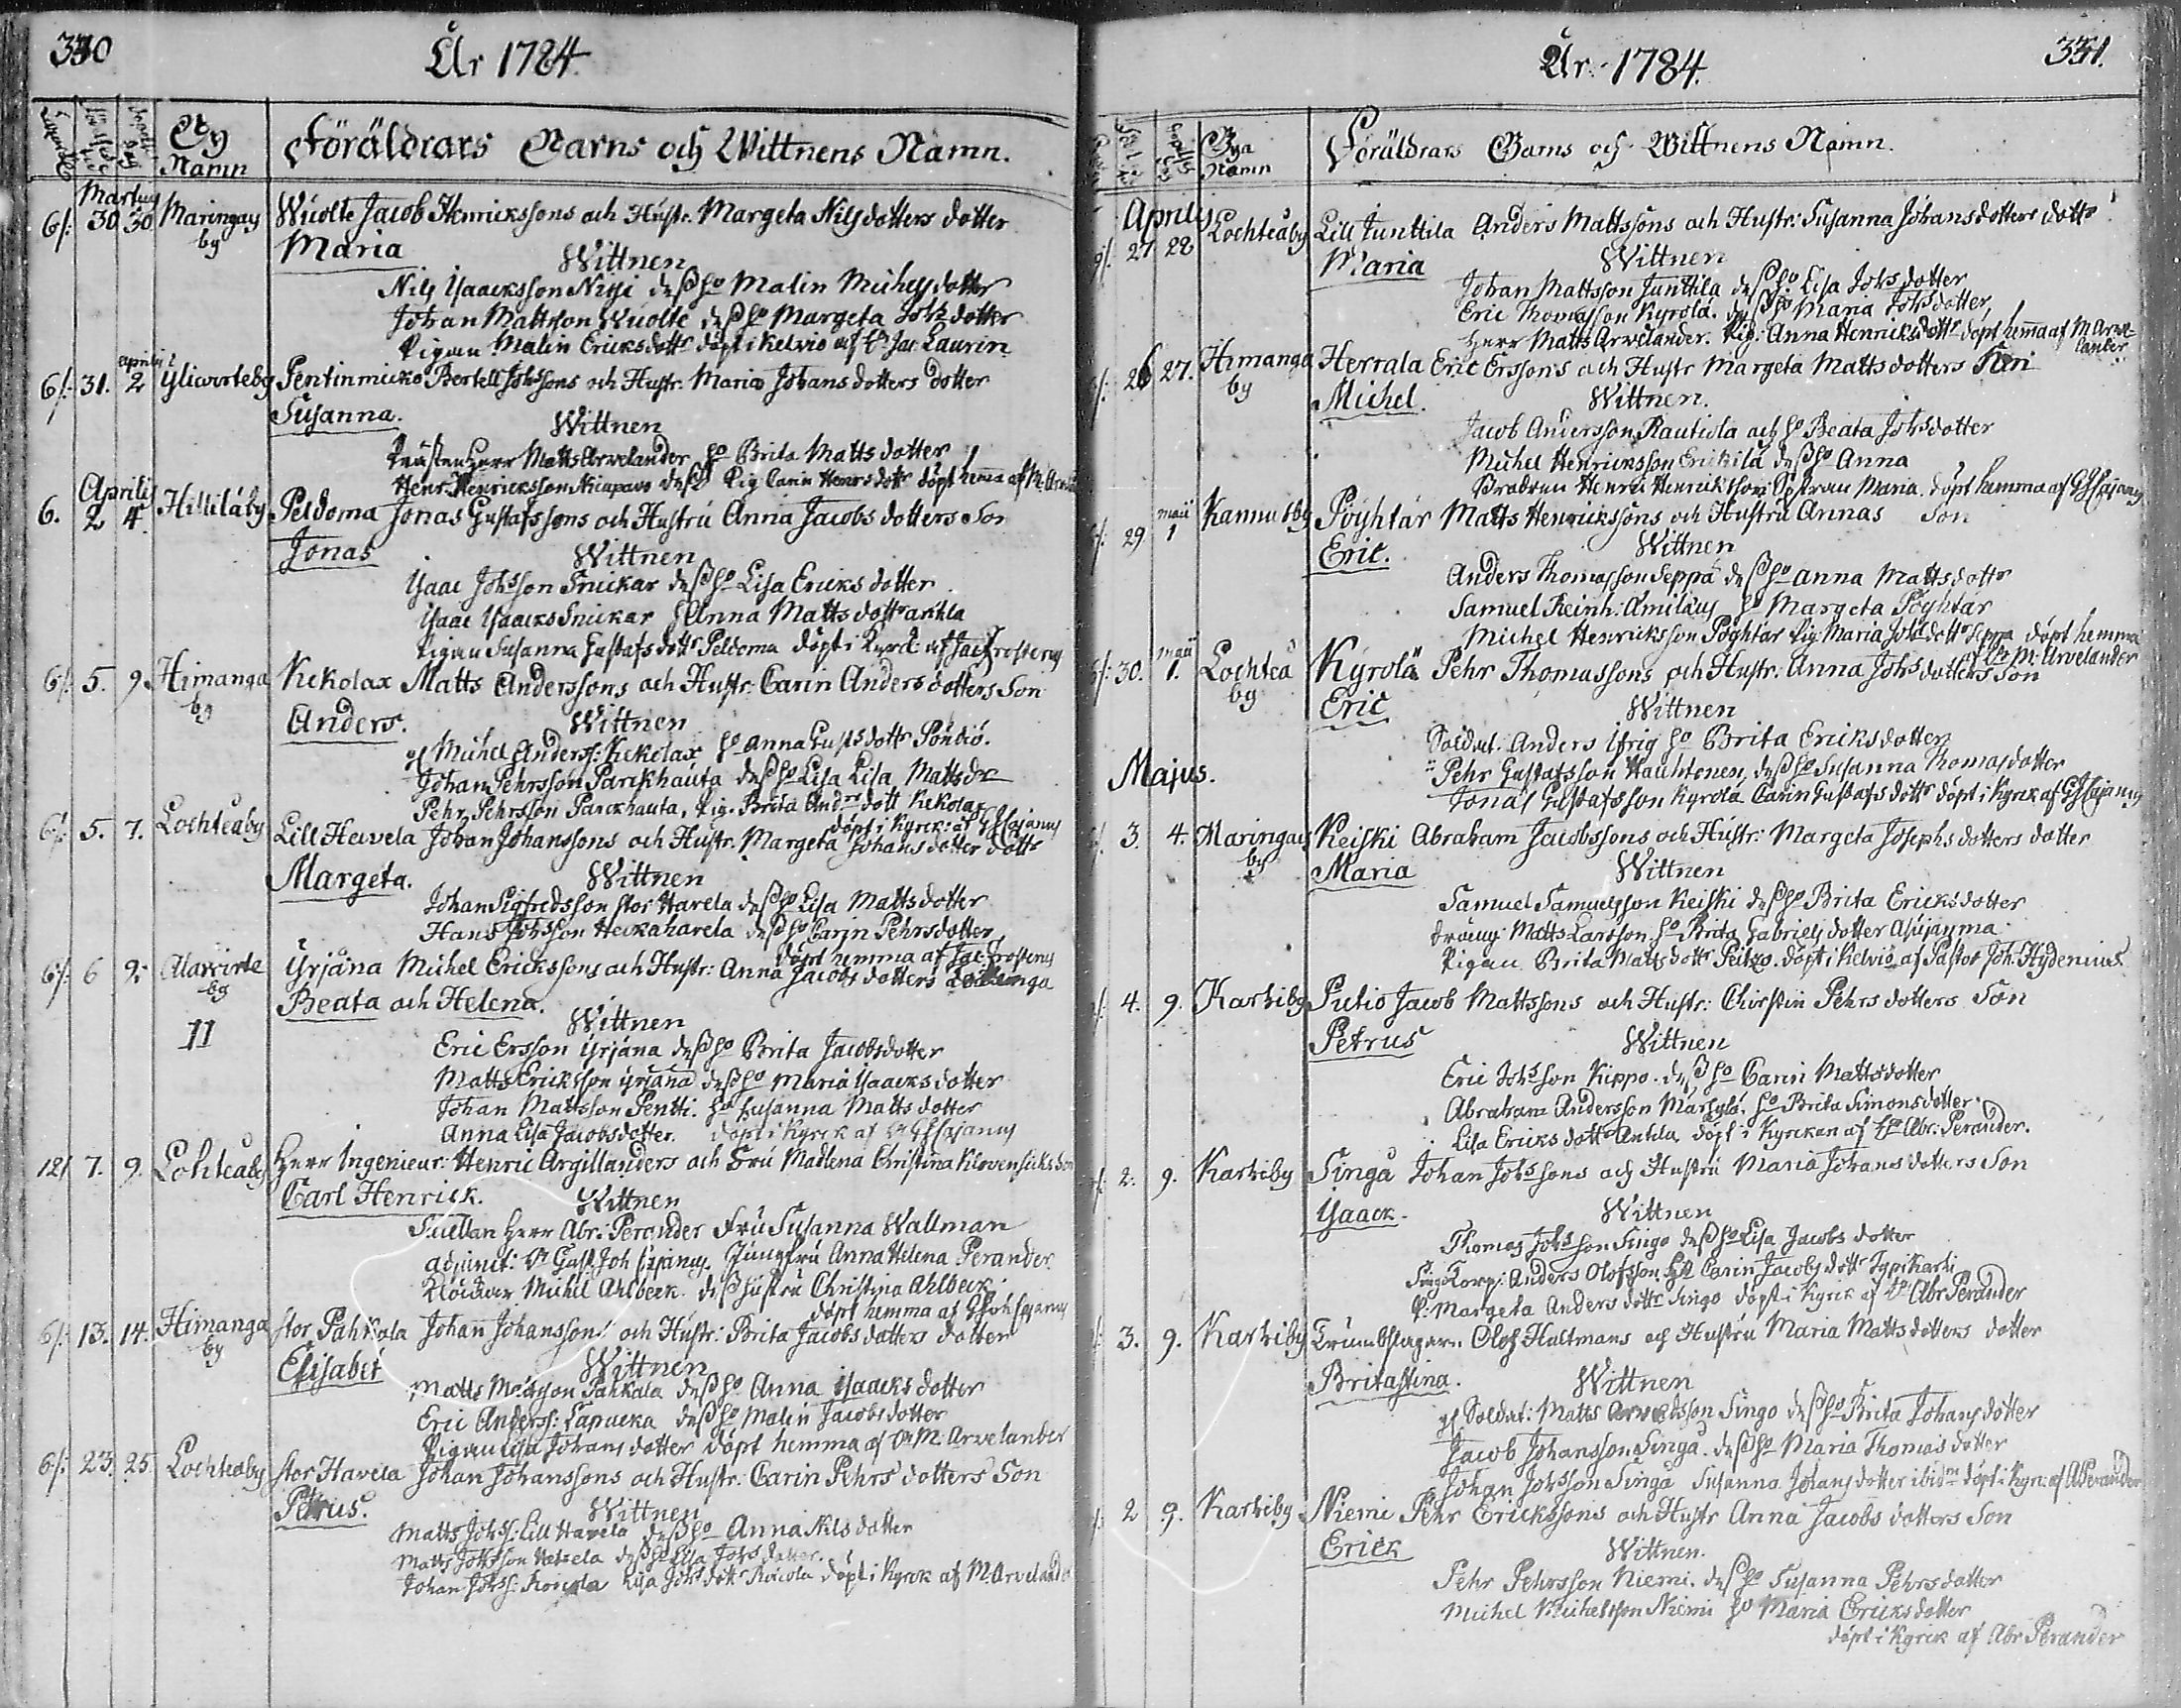 330
År 1784.
By
Namn
Föräldrars Barns och Wittnens Namn.
Martius
6/: 30 30 Maringais Wuolte Jacob Henrickssons och Hustr. Margeta Nilsdotters dotter
by Maria
Wittnen
Nils Isaacksson Nisi deß ho Malin Michelsdotter
Johan Mattsson Wuolte deß ho Margeta Johsdotter
Pigan Malin Ericksdottr döpt i Kelvio af Hr Jac Laurin
Aprilis
6/: 31. 2 Yliwirteby Pentinmicko Bertell Johssons och Hustr. Maria Johansdotters dotter
Susanna.
Wittnen
Prästen Herr Matts Arvelander ho Brita Mattsdotter
Henr: Henricksson Niapavo deß Pig Carin Henrsdottr döpt hemma af M. Arvel
Aprilis
6. 2 4. Hilliläby Peldoma Jonas Gustafssons och Hustru Anna Jacobsdotters Son
Jonas
Wittnen
Isaac Johsson Snickar deß ho Lisa Ericksdotter
Isaac Isaacks Snickar ho Anna Mattsdottr
Pigan Susanna Gustafsdottr Peldoma döpt i Kyrck af Jac Frosterus
6/: 5. 9. Himanga Kekolax Matts Anderssons och Hustr: Carin Andersdotters Son
by
Anders.
Wittnen
gl Michel Anderss: Kekolax ho Anna Gustsdottr Pöntiö.
Johan Pehrsson Parckhauta deß ho Lisa Lisa Mattsdr
Pehr Pehrsson Parckhauta, Pig. Brita Andrsdott Kekolax
döpt i Kyrck: af GJ Cajanus
6/: 5. 7. Lochteåby Lill Havela Johan Johanssons och Hustr. Margeta Johansdotter dottr
Margeta.
Wittnen
Johan Sigfredsson stor Havela deß ho Lisa Mattsdotter
Hans Johsson Heickahavela deß ho Carin Pehrsdotter,
döpt hemma af Jac. Frosterus
6/: 6 9. Alawirte Yrjäna Michel Erickssons och Hustr: Anna Jacobsdotters
by
Beata och Helena.
II
Wittnen
Eric Ersson Yrjäna deß ho Brita Jacobsdotter
Matts Ericksson Yrjäna deß ho Maria Isaacksdotter
Johan Mattsson Pentti. ho Susanna Mattsdotter
Anna Lisa Jacobsdotter. döpt i Kyrck af GJ Cajanus
12/ 7. 9. Lohteåby Herr Ingenieur: Henric Argillanders och Fru Madlena Christina
Carl Henrick.
Wittnen
Herr Abr: Perander Fru Susanna Wallman
adjunct: Gust Joh Cajanus. Jungfru Anna Helena Perander
Klockar Michel Ahlbeck. deß Hustru Christina Ahlbeck.
döpt hemma af G Joh Cajanus
6/: 13. 14. Himanga stor Pahkala Johan Johanssons och Hustr: Brita Jacobsdotters dotter
by
Elisabet
Wittnen
Matts Matsson Pahkala deß ho Anna Isaacksdotter
Eric Anderss: Sapucka deß ho Malin Jacobsdotter
Pigan Lisa Johansdotter döpt hemma af Hr M. Arvelander
6/: 23. 25. Lochteåby stor Havela Johan Johanssons och Hustr: Carin Pehrsdotters Son
Petrus.
Wittnen
Matts Johss: Lill Havela deß ho Anna Nilsdotter
Matts Johsson deß ho Lisa Johsdotter.
Johan Johss: Lisa Johsdottr döpt i Kyrck af M. Arvelander
331.
År 1784.
Bya
Namn
Föräldrars Barns och Wittnens Namn.
Aprilis
27 28 Lochteåby Lill Junttila Anders Mattssons och Hustr: Susanna Johansdotters dottr
Maria
Wittnen
Johan Mattsson Junttila deß ho Lisa Johsdotter
Eric Thomasson Kyrölä. deß ho Maria Johsdotter,
Herr Matts Arvelander. Pig: Anna Henricksdottr döpt hemma af M Arve-
lander
26 27. Himanga Herrala Eric Erssons och Hustr Margeta Mattsdotters Son
by
Michel.
Wittnen.
Jacob Andersson Rautiola och ho Beata Johsdotter
Michel Henricksson Erickilä deß ho Anna
Bradren Henric Henricksson Systran Maria. döpt hemma af GJ Cajanus
maii
29 1 Kannusby Pöyhtär Matts Henrickssons och Hustru Annas Son
Eric.
Wittnen
Anders Thomasson Seppä deß ho Anna Mattsdottr
Samuel Reinh: Amilaus ho Margeta Pöyhtär
Michel Henricksson Pöyhtär Pig: Maria Johsdottr Seppä döpt hemma
af Hr M. Arvelander
maii
30. 1. Lochteå Kyrölä Pehr Thomassons och Hustr: Anna Johsdotters Son
by
Eric
Wittnen
Soldat: Anders Ifrig ho Brita Ericksdotter
Pehr Gustafsson Hauhtonen, deß ho Susanna Thomasdotter
Jonas Gustafsson Kyrölä Carin Gustafsdottr döpt i Kyrck af GJ Cajanus
Majus.
3. 4. Maringais Keiski Abraham Jacobssons och Hustr: Margeta Josephsdotters dotter
by
Maria
Wittnen
Samuel Samuelsson Keiski deß ho Brita Ericksdotter
Matts Larsson ho Brita Gabrielsdotter
Pigan Brita Mattsdottr Peitzo. döpt i Kelvio af Pastor Joh: Hydenius.
4. 9. Karhiby Putio Jacob Mattssons och Hustr: Chirstin Pehrsdotters Son
Petrus
Wittnen
Eric Johsson Kippo. deß ho Carin Mattsdotter
Abraham Andersson Märsylä. ho Brita Simonsdotter.
Lisa Ericksdottr Antila döpt i Kyrckan af Hr Abr: Perander.
2. 9. Karhiby Singå Johan Johssons och Hustru Maria Johansdotters Son
Isaack.
Wittnen
Thomas Johsson Singo deß ho Lisa Jacobsdotter
Korp: Anders Olofsson ho Carin Jacobsdottr Typikarhi
P: Margeta Andersdottr Singo döpt i Kyrck af Hr Abr Perander
3. 9. Karhiby Trumbslagarn Olof Hultmans och Hustru Maria Mattsdotters dotter
Britastina.
Wittnen
gl Soldat: Matts Arvedsson Singo deß ho Brita Johansdotter
Jacob Johansson Singå. deß ho Maria Thomasdotter
Johan Johsson Singå Susanna Johansdotter ibidm döpt i Kyrc: af A Perander
2 9. Karhiby Niemi Pehr Erickssons och Hustr Anna Jacobsdotters Son
Erick
Wittnen.
Pehr Pehrsson Niemi. deß ho Susanna Pehrsdotter
Michel Michelsson Niemi ho Maria Ericksdotter
döpt i Kyrck af Abr Perander